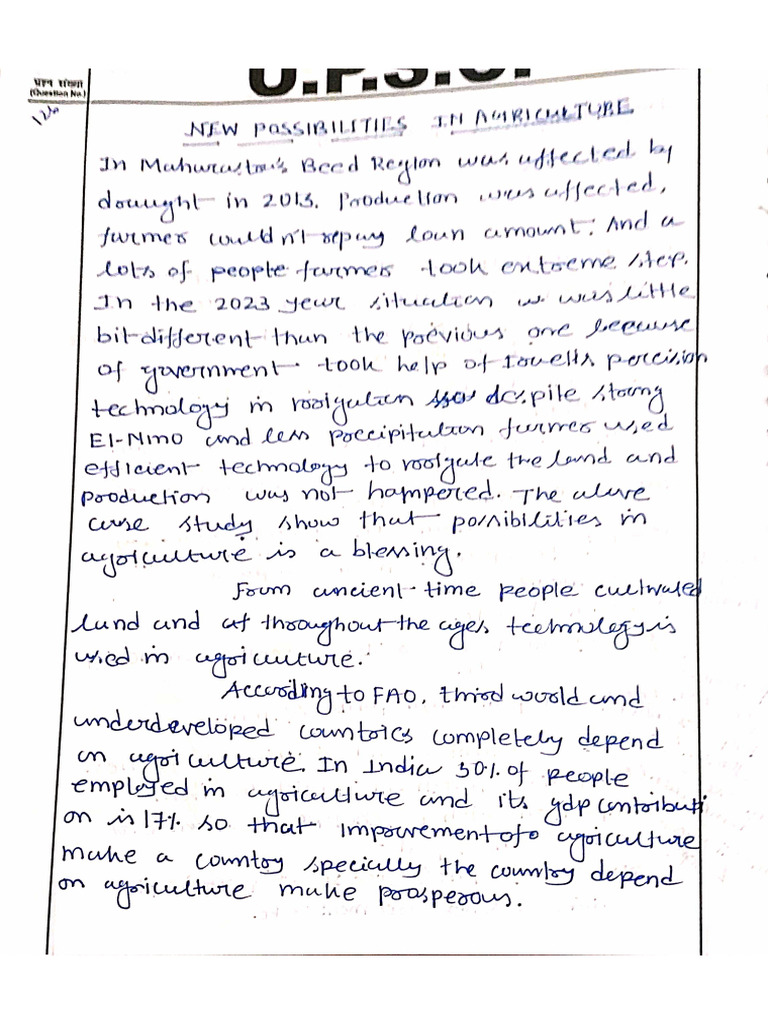 U.P.S.C.
प्रश्न संख्या
(Question No.)
NEW POSSIBILITIES IN AGRICULTURE
In Maharastra's Beed Region was affected by
drought in 2013. Production was affected,
farmer couldn't repay loan amount. And a
lots of people farmer took extreme step.
In the 2023 year situation was little
bit different than the previous one because
of government took help of percision
technology in despile strong
El-Nino and less precipitation farmer used
efficient technology to the land and
production was not hampered. The above
case study show that possibilities in
agriculture is a blessing.
From ancient time people cultivated
land and at throughout the ages technology is
used in agriculture.
According to FAO, third world and
underdeveloped countries completely depend
on agriculture. In India 50% of people
employed in agriculture and its gdp contributi
on is 17% so that improvement of agriculture
make a country specially the country depend
on agriculture make prosperous.